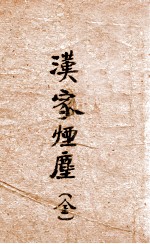 漢家煙塵(全)